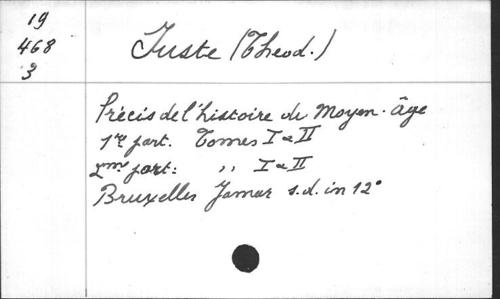 19
468
3
Juste (Théod.)
Précis de l'histoire du Moyen-âge
1re part. Tomes I & II
2me part: ,, I & II
Bruxelles Jamar s.d. in 12°